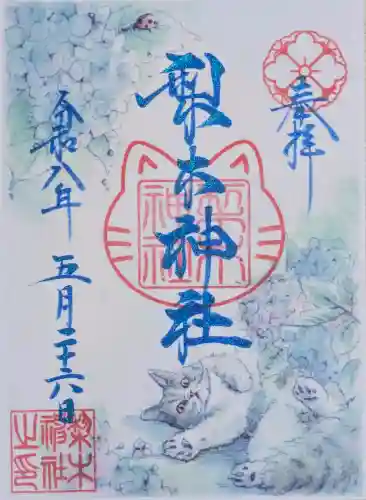 奉拝
梨木神社
令和八年五月二十六日
梨木
神社
梨木
神社
之印